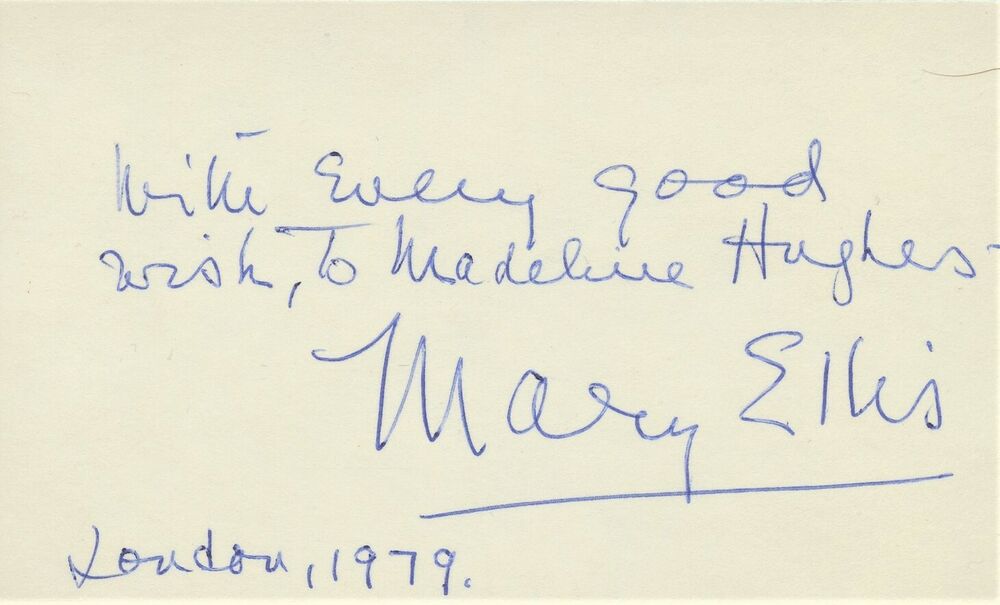 With Every good
wish, To Madeline Hughes-
Mary Ellis
London, 1979.